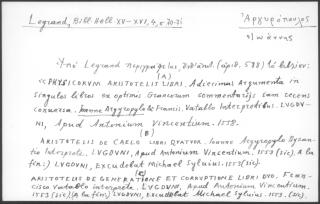 Legrand, Bibl. Hell. XV-XVI, 4, σ. 70-71
Ἀργυρόπουλος
Ἰωάννης
Ὁ Legrand περιγράφει, (ἀριθ. 588) τὸ βιβλίον:
(A)
«PHYSICORVM ARISTOTELIS LIBRI. Adiecimus argumenta in
singulos libros ex optimis Graecorum commentarijs iam recens
conuersa. Ioanne Argyropylo & Francis. Vatablo Interpretibus. LVGDV-
NI, Apud Antonium Vincentium. 1558.
(B)
ARISTOTELIS DE CAELO LIBRI QVATVOR. Ioanne Argyropylo Byzan-
tio Interprete. LVGDVNI, Apud Antonium Vincentium. 1559 (sic). (A la
fin:) LVGDVNI, Excudebat Michael Syluius. 1558 (sic).
(C)
ARISTOTELIS DE GENERATIONE ET CORRVPTIONE LIBRI DVO. Fran-
cisco Vatablo interprete. LVGDVNI, Apud Antonium Vincentium.
1559 (sic). (A la fin:) LVGDVNI, Excudebat Michael Syluius. 1558 (sic).